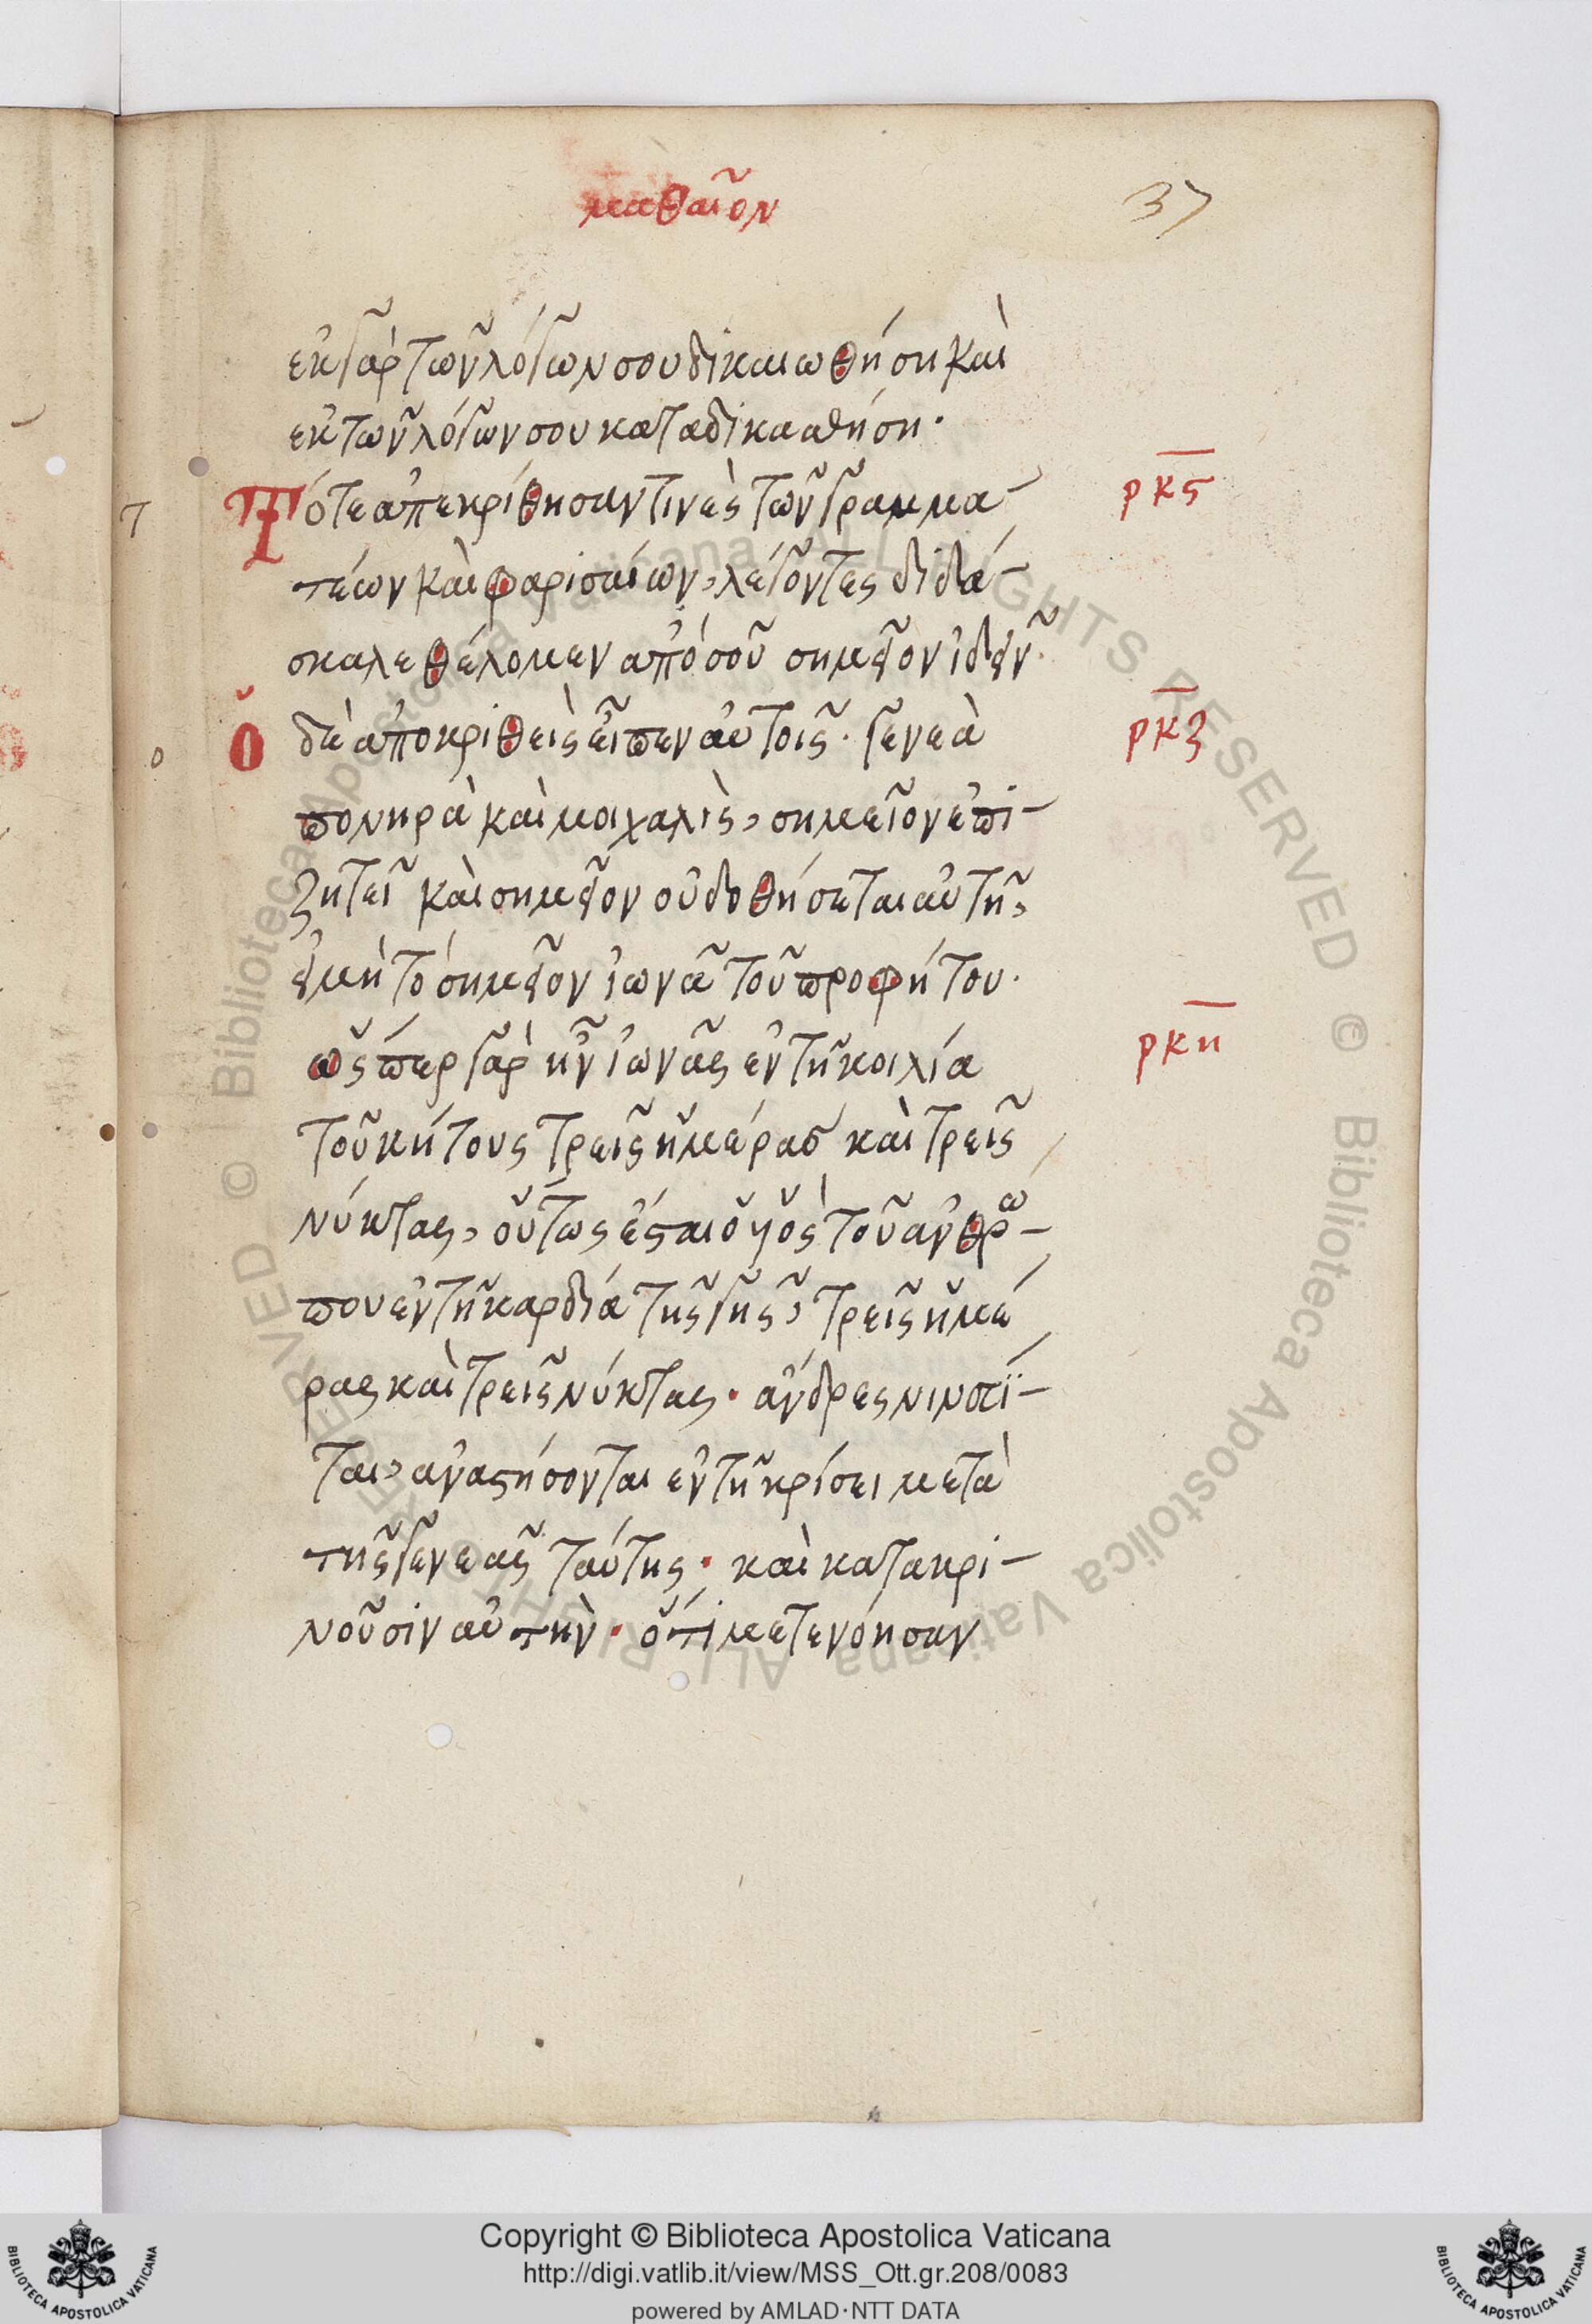 μαθαῖον
37
ἐκ γὰρ τῶν λόγων σου δικαιωθήση καὶ
ἐκ τῶν λόγων σου καταδικασθήση·
Τότε ἀπεκρίθησαν τινὲς τῶν γραμμα-
ρκς
τέων καὶ φαρισαίων, λέγοντες διδά-
σκαλε θέλομεν ἀπὸ σοῦ σημεῖον ἰδεῖν·
ὁ δὲ ἀποκριθεὶς εἶπεν αὐτοῖς· γενεὰ
ρκζ
πονηρὰ καὶ μοιχαλὶς, σημεῖον ἐπι-
ζητεῖ καὶ σημεῖον οὐ δοθήσεται αὐτῆ,
εἰ μὴ τὸ σημεῖον ἰωνᾶ τοῦ προφήτου·
ὥσπερ γὰρ ἦν ἰωνᾶς ἐν τῆ κοιλία
ρκη
τοῦ κήτους τρεῖς ἡμέρας καὶ τρεῖς
νύκτας, οὕτως ἔσται ὁ υἱὸς τοῦ ἀνθρώ-
που ἐν τῆ καρδία τῆς γῆς, τρεῖς ἡμέ
ρας καὶ τρεῖς νύκτας· ἄνδρες νινευί-
ται, ἀναστήσονται ἐν τῆ κρίσει μετὰ
τῆς γενεᾶς ταύτης· καὶ κατακρι-
νοῦσιν αὐτὴν· ὅτι μετενόησαν
τ
ο
Copyright © Biblioteca Apostolica Vaticana
http://digi.vatlib.it/view/MSS_Ott.gr.208/0083
powered by AMLAD·NTT DATA
BIBLIOTECA APOSTOLICA VATICANA
BIBLIOTECA APOSTOLICA VATICANA
© Biblioteca Apostolica Vaticana ALL RIGHTS RESERVED © Biblioteca Apostolica Vaticana ALL RIGHTS RESERVED